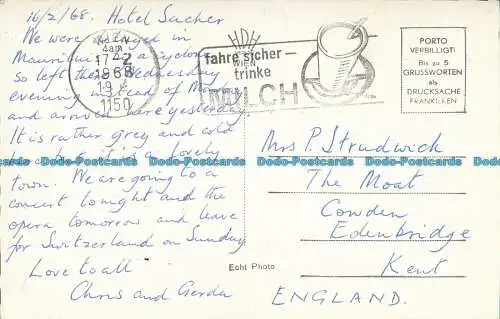 16/2/68. Hotel Sacher
We were delayed in
Mauritius by a cyclone
So left on Wednesday
evening instead of Mon
and arrived here yesterday.
It is rather grey and cold
lovely
town. We are going to a
concert tonight and the
opera tomorrow and leave
for Switzerland on Sunday
Love to all
Chris and Gerda
WIEN
4am
17-2
1968
19
1150
HDH
fahre sicher—
WIEN
trinke
MILCH
PORTO
VERBILLIGT!
Bis zu 5
GRUSSWORTEN
als
DRUCKSACHE
FRANKIEREN
Mrs P. Strudwick
The Moat
Cowden
Edenbridge
Kent
ENGLAND.
Echt Photo
Bdo-Postcards
Bdo-Postcards
Bdo-Postcards
Bdo-Postcards
Bdo-Postcards